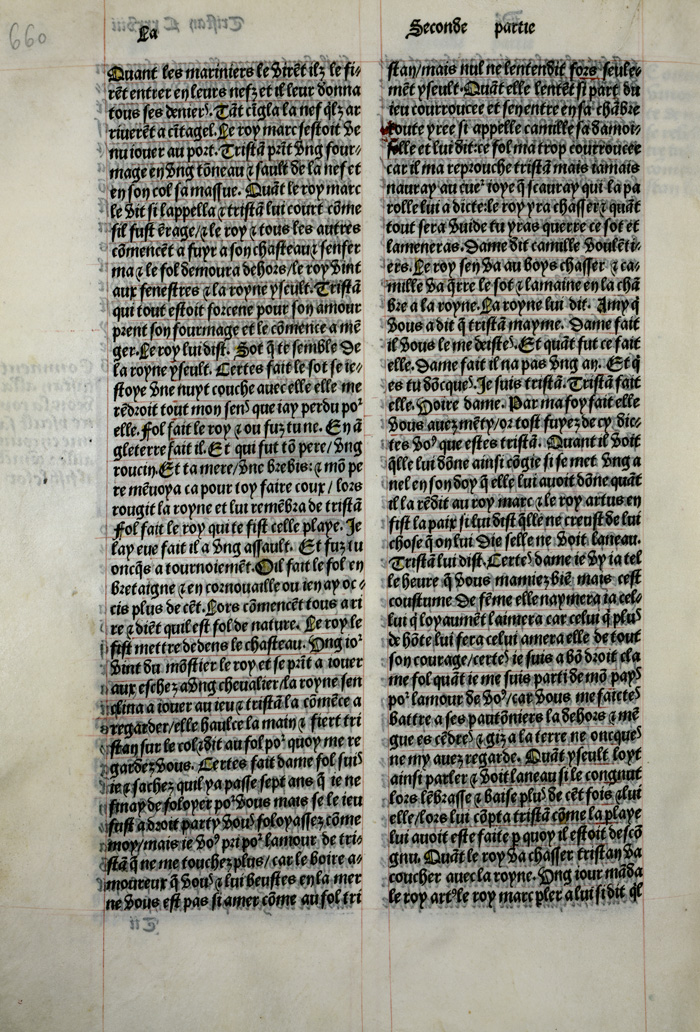 660
La
Seconde partie
Quant les mariniers le virēt ilz le fi⸗
rēt entrer en leurs nefz et il leur donna
tous ses denierꝰ. Tāt cīgla la nef q̄lz ar
riuerēt a cītagel. Le roy marc sestoit ve
nu iouer au port. Tristā prīt vng four⸗
mage en vng tōneau ⁊ sault de la nef et
en son col sa massue. Quāt le roy marc
le vit si lappella ⁊ tristā lui court cōme
sil fust ērage/⁊ le roy ⁊ tous les autres
cōmencēt a fuyr a son chasteau ⁊ senfer
ma ⁊ le fol demoura dehors/le roy vint
aux fenestres ⁊ la royne yseult. Tristā
qui tout estoit forcene pour son amour
prent son fourmage et le cōmence a mē
ger. Le roy lui dist. Sot q̄ te semble de
la royne yseult. Certes fait le sot se ie⸗
stoye vne nuyt couche auec elle elle me
rēdroit tout mon senꝰ que iay perdu poꝰ
elle. Fol fait le roy ⁊ ou fuz tu ne. En ā
gleterre fait il. Et qui fut tō pere/vng
roucin. Et ta mere/vne brebis: ⁊ mō pe
re mēuoya ca pour toy faire coux/lors
rougit la royne et lui remēbra de tristā
Fol fait le roy qui te fist celle playe. Je
lay eue fait il a vng assault. Et fuz tu
oncq̄s a tournoiemēt. Oil fait le fol en
bretaigne ⁊ en cornouaille ou ien ay oc⸗
cis plus de cēt. Lors cōmencēt tous a ri
re ⁊ diēt quil est fol de nature. Le roy le
fist mettre dedens le chasteau. Vng ioꝰ
vint du mōstier le roy et se prīt a iouer
aux eschez a vng cheualier/la royne sen
clina a iouer au ieu ⁊ tristā la cōmēce a
regarder/elle haulce la main ⁊ fiert tri
stan sur le col ⁊ dit au fol poꝰ quoy me re
gardez vous. Certes fait dame fol suiꝰ
ie ⁊ sachez quil ya passe sept ans q̄ ie ne
finay de foloyer poꝰ vous mais se le ieu
fust a droit party voꝰ foloyassez cōme
moy/mais ie voꝰ pri poꝰ lamour de tri⸗
stā q̄ ne me touchez plus/car le boire a⸗
moureux q̄ vouꝰ ⁊ lui beustes en la mer
ne vous est pas si amer cōme au fol tri
stan/mais nul ne lentendit fors seule⸗
mēt yseult. Quāt elle lentēt si part du
ieu courroucee et sen entre en sa chābre
toute yree si appelle camille sa damoi⸗
selle et lui dit: ce fol ma trop courroucee
car il ma reprouche tristā mais iamais
nauray au cueꝰ ioye q̄ scauray qui la pa
rolle lui a dicte: le roy yra chasser ⁊ quāt
tout sera vuide tu yras querre ce sot et
lameneras. Dame dit camille voulēti⸗
ers. Le roy sen va au boys chasser ⁊ ca⸗
mille va q̄rre le sot ⁊ lamaine en la chā
bre a la royne. La royne lui dit. Amy q̄
vous a dit q̄ tristā mayme. Dame fait
il vous le me deisteꝰ. Et quāt fut ce fait
elle. Dame fait il na pas vng an. Et q̄
es tu dōcqueꝰ. Je suis tristā. Tristā fait
elle. Voire dame. Par ma foy fait elle
vous auez mēty/or tost fuyez de cy dic⸗
tes voꝰ que estes tristā. Quant il voit
q̄lle lui dōne ainsi cōgie si se met vng a
nel en son doy q̄ elle lui auoit dōne quāt
il la rēdit au roy marc ⁊ le roy artus en
fist la paix si lui dist q̄lle ne creust de lui
chose q̄ on lui die selle ne voit laneau.
Tristā lui dist. Certeꝰ dame ie vy ia tel
le heure q̄ vous mamiez biē mais cest
coustume de fēme elle naymera ia cel⸗
lui q̄ loyaumēt laimera car celui q̄ pluꝰ
de hōte lui fera celui amera elle de tout
son courage/certeꝰ ie suis a bō droit cla
me fol quāt ie me suis parti de mō payꝰ
poꝰ lamour de voꝰ/car vous me faicteꝰ
battre a ses pautōniers la dehors ⁊ mē
gue es cēdreꝰ ⁊ giz a la terre ne oncqueꝰ
ne my auez regarde. Quāt yseult loyt
ainsi parler ⁊ voit laneau si le congnut
lors lēbrasse ⁊ baise pluꝰ de cēt fois ⁊ lui
elle/lors lui cōpta tristā cōme la playe
lui auoit este faite p quoy il estoit descō
gnu. Quāt le roy va chasser tristan va
coucher auec la royne. Vng iour māda
le roy artꝰ le roy marc pler a lui si dit q̄l